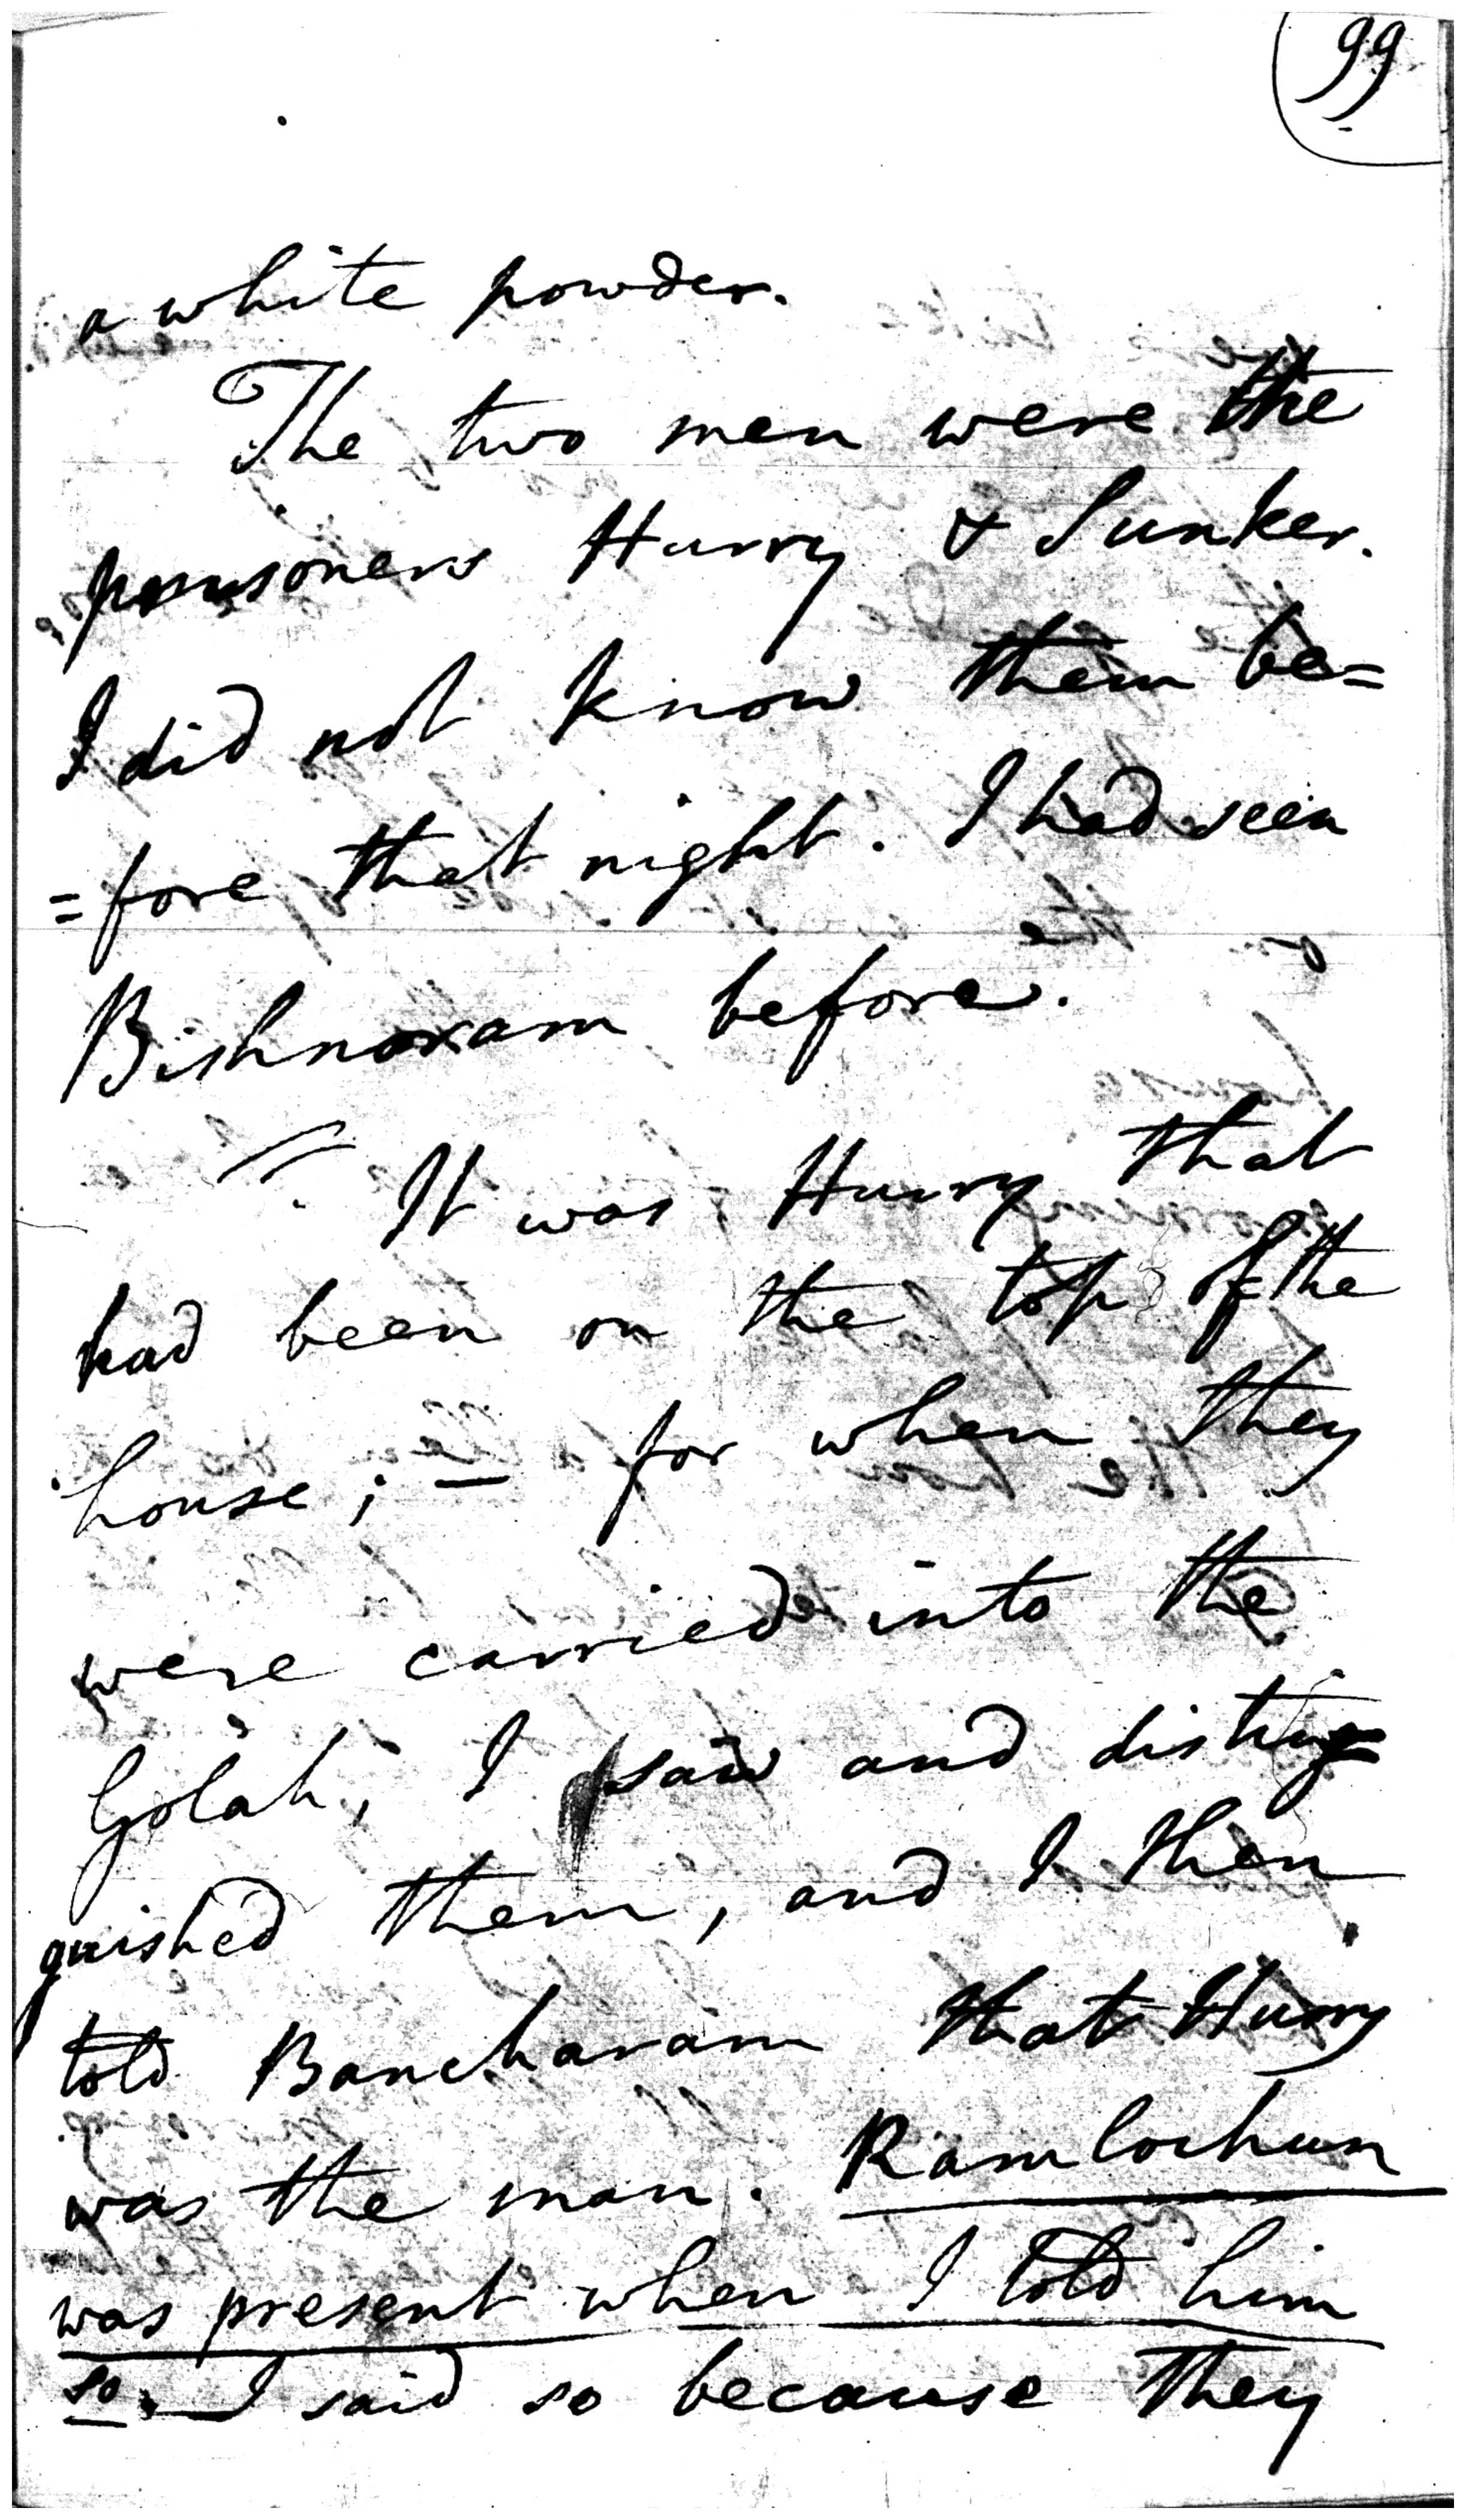 99
a white powder.
The two men were the
prisoners Hurry & Sunker.
I did not know them be=
=fore that night. I had seen
Bishnoram before.
It was Hurry that
had been on the top of the
house; — for when they
were carried into the
Golah, I saw and distin=
guished them, and I then
told Bancharam that Hurry
was the man. Ramlochun
was present when I told him
so. I said so because they